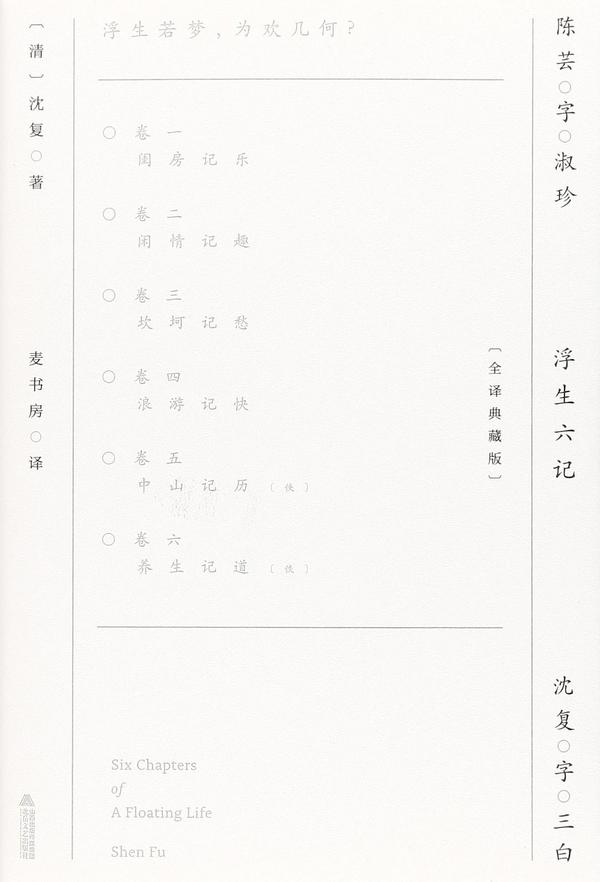 陈芸○字○淑珍
浮生六记
沈复○字○三白
〔全译典藏版〕
浮生若梦,为欢几何?
○ 卷一
闺房记乐
○ 卷二
闲情记趣
○ 卷三
坎坷记愁
○ 卷四
浪游记快
○ 卷五
中山记历〔佚〕
○ 卷六
养生记道〔佚〕
Six Chapters
of
A Floating Life
Shen Fu
〔清〕沈复○著
麦书房○译